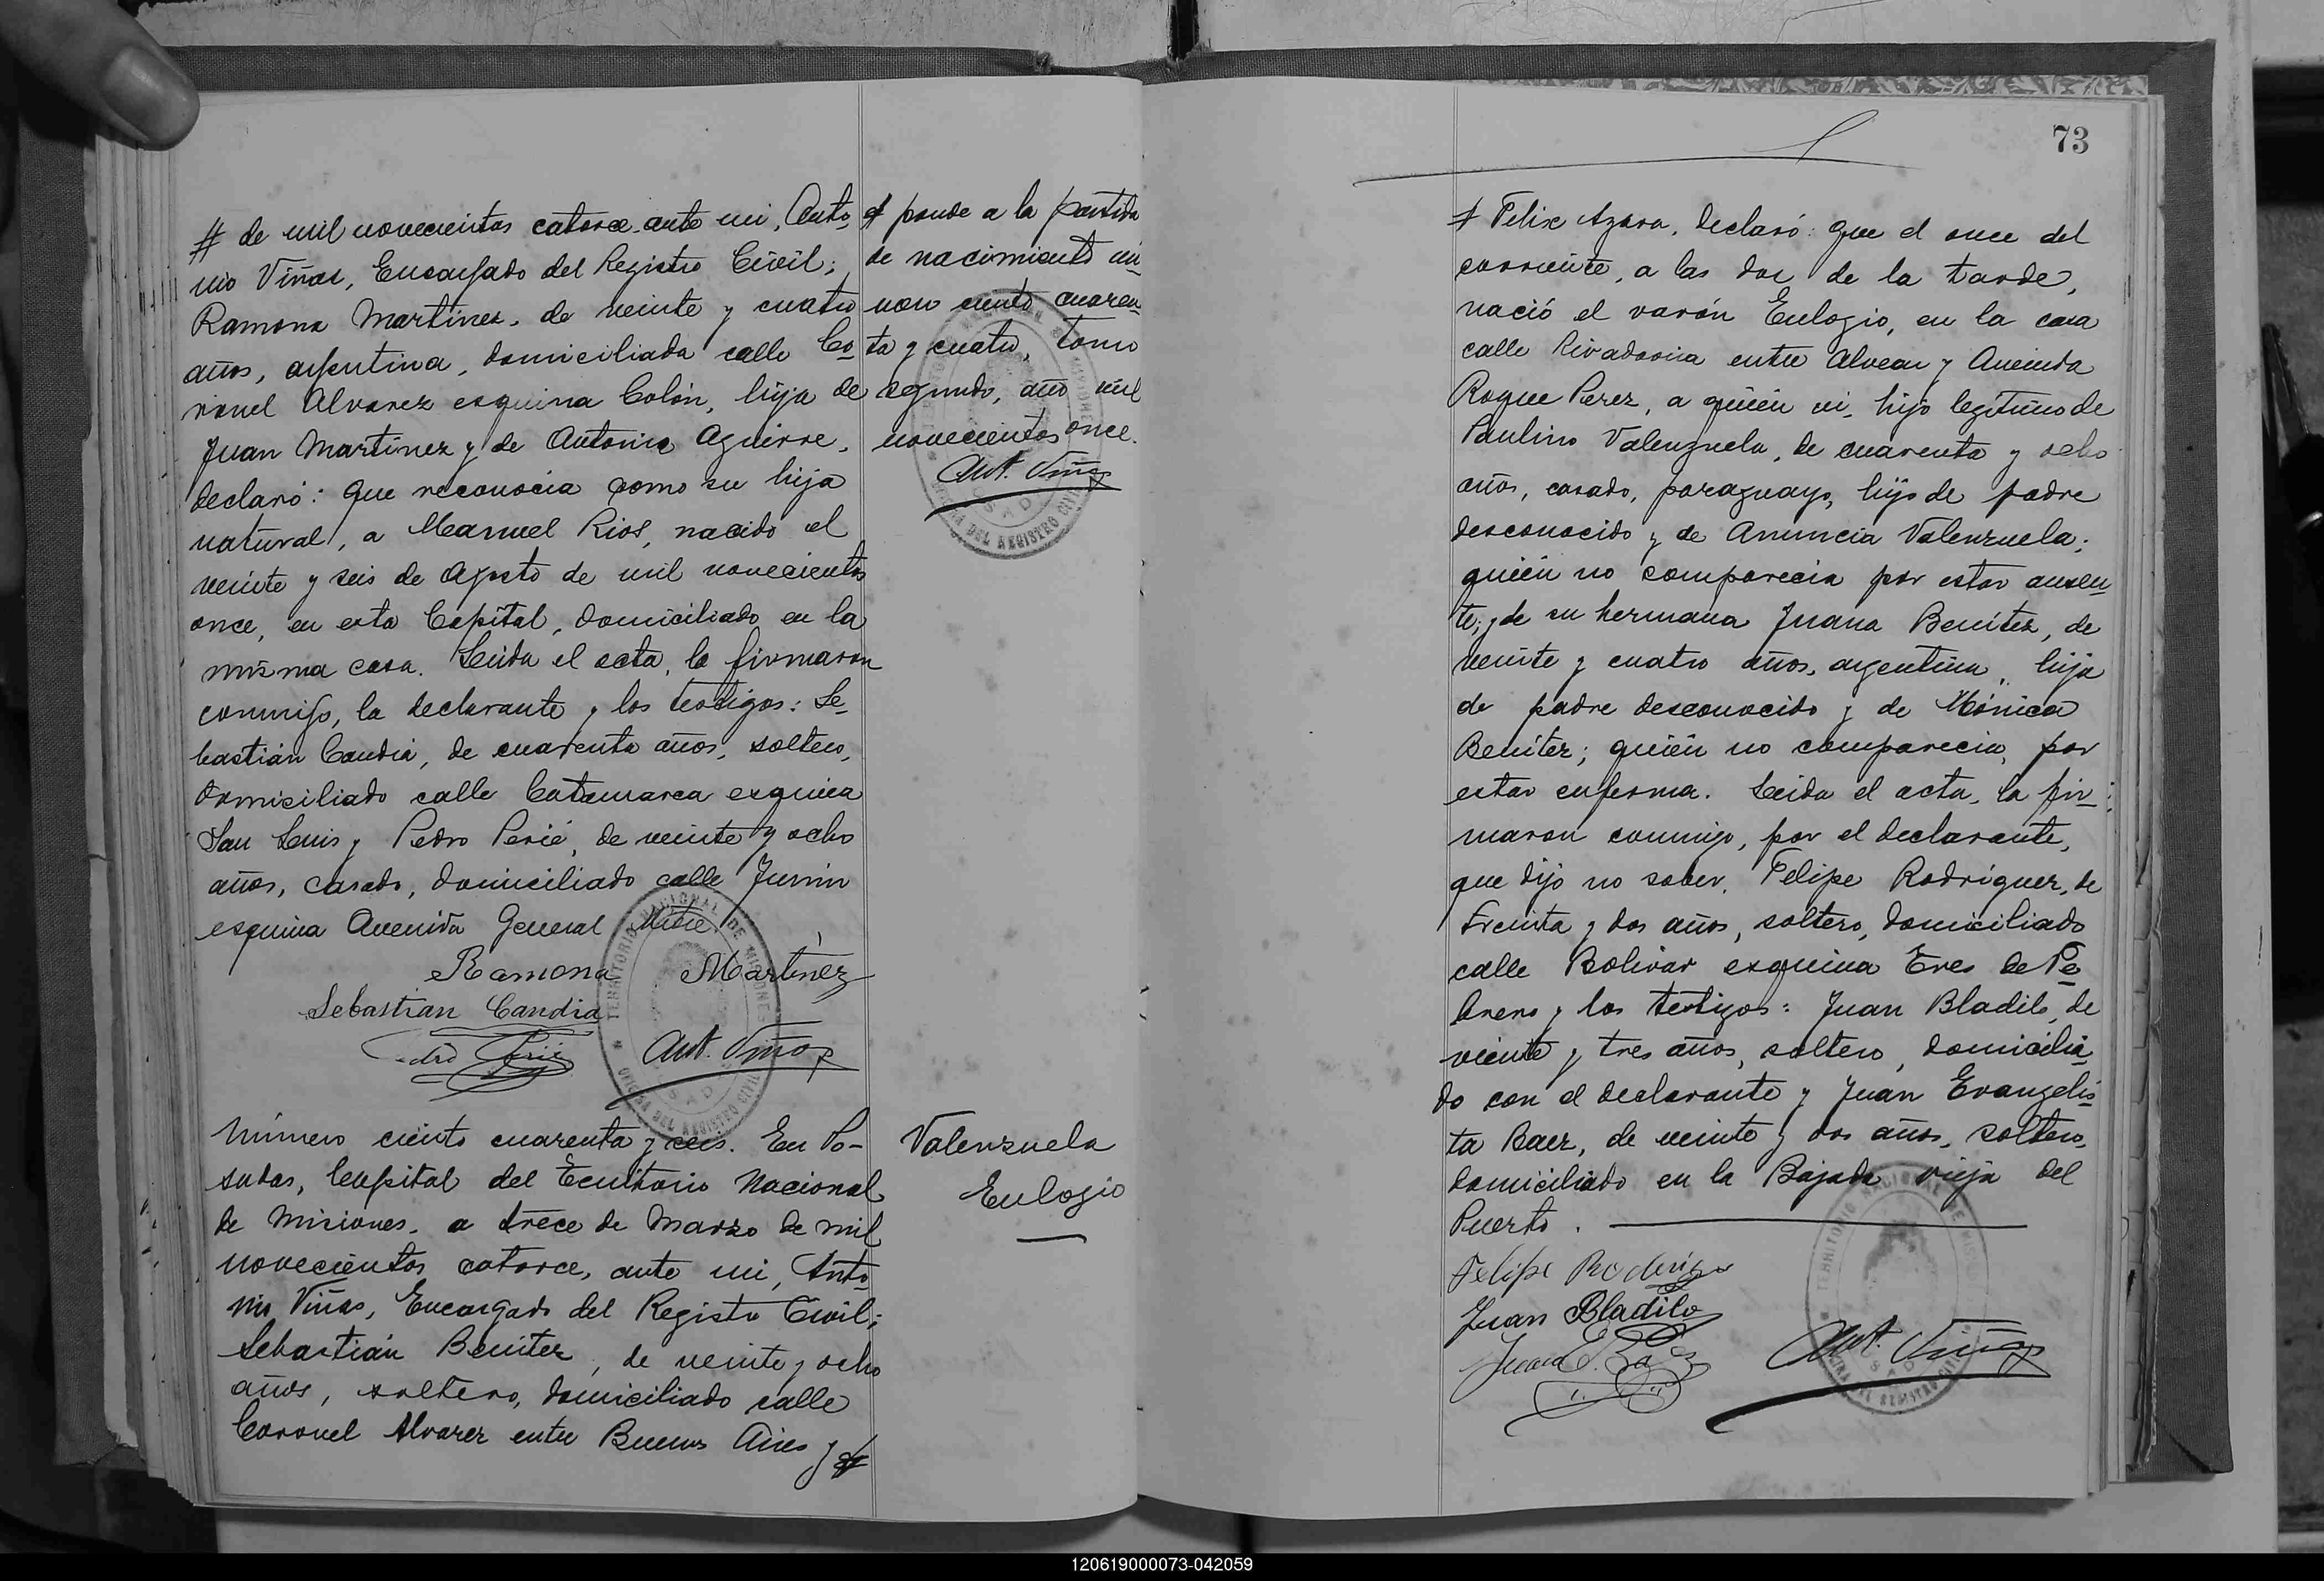 # de mil novecientos catorce, ante mi, Anto
nio Viñas, Encargado del Registro Civil;
Ramona Martinez, de veinte y cuatro
años, argentina, domiciliada calle Co
ronel Alvarez esquina Colón, hija de
Juan Martinez y de Antonia Aguirre,
declaró: Que reconocia como su hijo
natural, a Manuel Rios, nacido el
veinte y seis de Agosto de mil novecientos
once, en esta Capital, domiciliado en la
misma casa. Leida el acta, la firmaron
conmigo, la declarante y los testigos: Se
bastián Candia, de cuarenta años, soltero,
domiciliado calle Catamarca esquina
San Luis y Pedro Perié, de veinte y ocho
años, casado, domiciliado calle Junin
esquina Avenida General Mitre.
Ramona Martinez
Sebastian Candia
Pedro Perié
Ant. Viñas
# ponde a la partida
de nacimiento nú
mero ciento cuaren
ta y cuatro, tomo
segundo, año mil
novecientos once.
Ant. Viñas
Número ciento cuarenta y seis. En Po-
sadas, Capital del Territorio Nacional
de Misiones, a trece de Marzo de mil
novecientos catorce, ante mi, Anto
nio Viñas, Encargado del Registro Civil;
Sebastián Benitez, de veinte y ocho
años, soltero, domiciliado calle
Coronel Alvarez entre Buenos Aires y #
Valenzuela
Eulogio
73
# Felix Azara, declaró: Que el once del
corriente, a las dos de la tarde,
nació el varón Eulogio, en la casa
calle Rivadavia entre Alvear y Avenida
Roque Perez, a quién vi, hijo legitimo de
Paulino Valenzuela, de cuarenta y ocho
años, casado, paraguayo, hijo de padre
desconocido y de Anuncia Valenzuela;
quién no comparecia por estar ausen
te; y de su hermana Juana Benitez, de
veinte y cuatro años, argentina, hija
de padre desconocido y de Mónica
Benitez; quién no comparecia, por
estar enferma. Leida el acta, la fir
maron conmigo, por el declarante,
que dijo no saber, Felipe Rodriguez, de
treinta y dos años, soltero, domiciliado
calle Bolivar esquina Tres de Fe
brero y los testigos: Juan Bladilo, de
veinte y tres años, soltero, domicilia
do con el declarante y Juan Evangelis
ta Baez, de veinte y dos años, soltero,
domiciliado en la Bajada vieja del
Puerto.
Felipe Rodriguez
Juan Bladilo
Juan E. Baez
Ant. Viñas
120619000073-042059